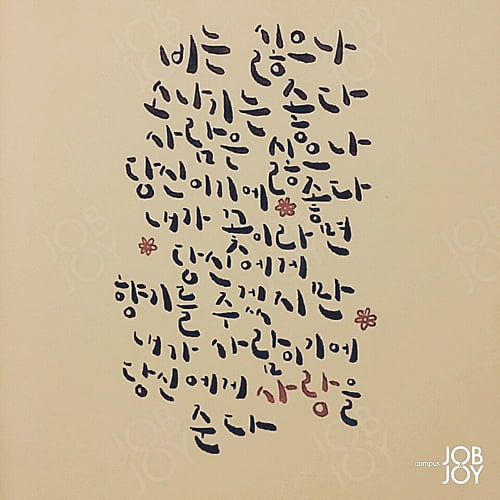 비는 싫으나
소나기는 좋다
사람은 싫으나
당신이기에 좋다
내가 꽃이라면
당신에게
향기를 주겠지만
내가 사람이기에
당신에게 사랑을
준다
campus JOB JOY